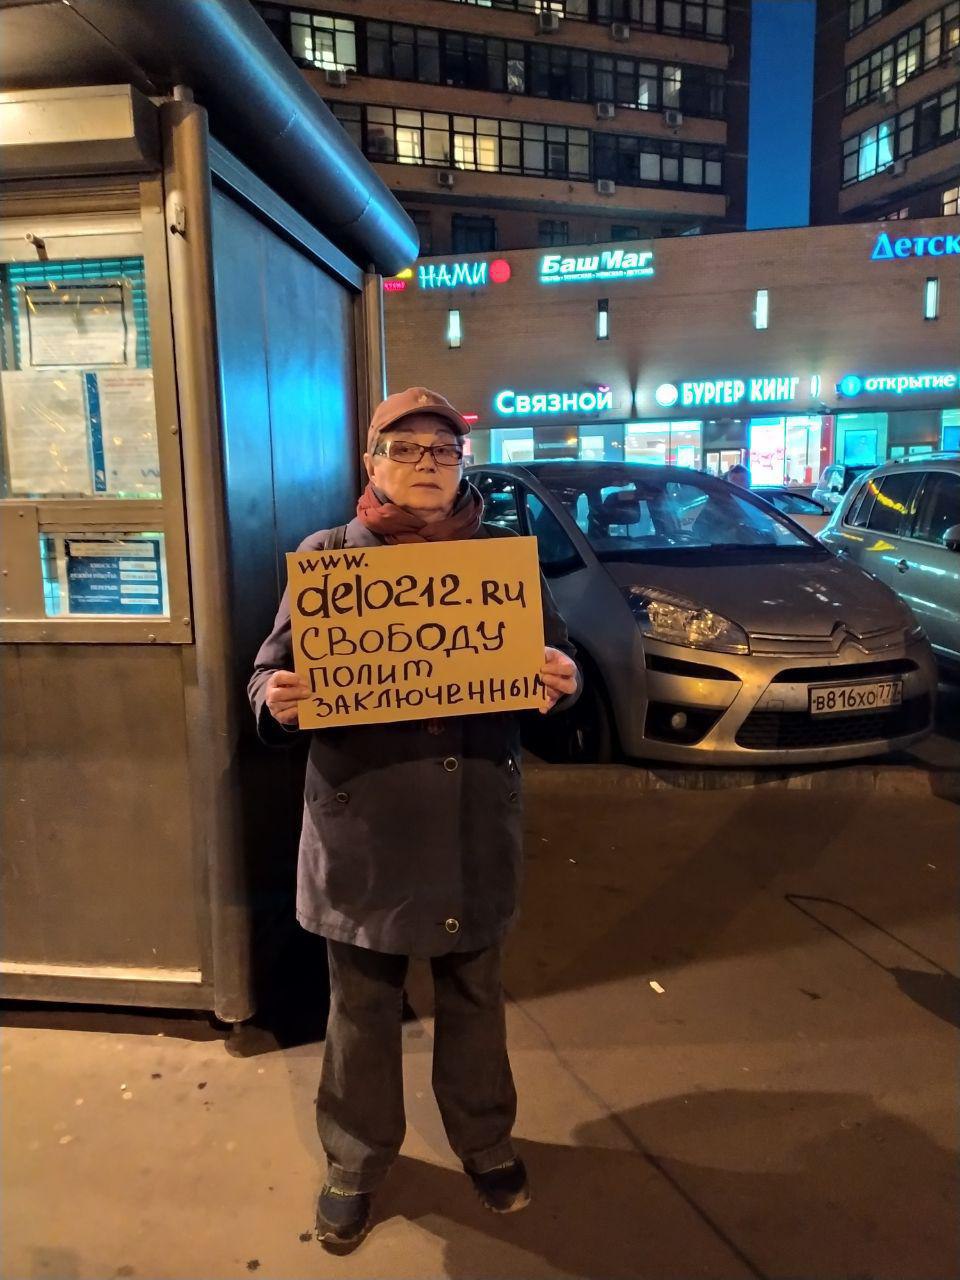 НАМИ
БашМаг
Детск
Связной
БУРГЕР КИНГ
открытие
www.
delo212.Ru
СВОБОДУ
ПОЛИТ
ЗАКЛЮЧЕННЫМ
В816ХО 777